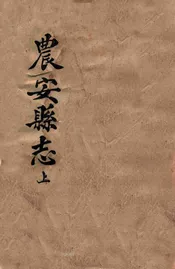 農安縣志
上